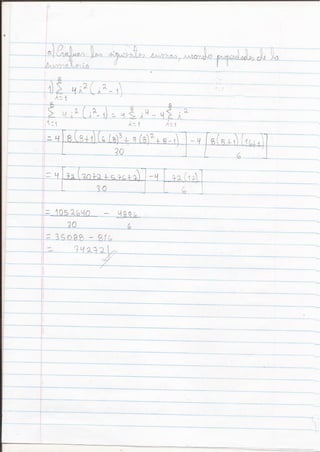 a) Graficar las siguientes sumas, usando propiedades de la
sumatoria
8
1) Σ 4i² (i² - 1)
i=1
8 8 8
Σ 4i² (i² - 1) = 4 Σ i⁴ - 4 Σ i²
i=1 i=1 i=1
= 4 [ 8(8+1)(6(8)³ + 9(8)² + 8 - 1) / 30 ] - 4 [ 8(8+1)(16+1) / 6 ]
= 4 [ 72 (3072 + 576 + 7) / 30 ] - 4 [ 72 (17) / 6 ]
= 1052640 / 30 - 4896 / 6
= 35088 - 816
= 34272